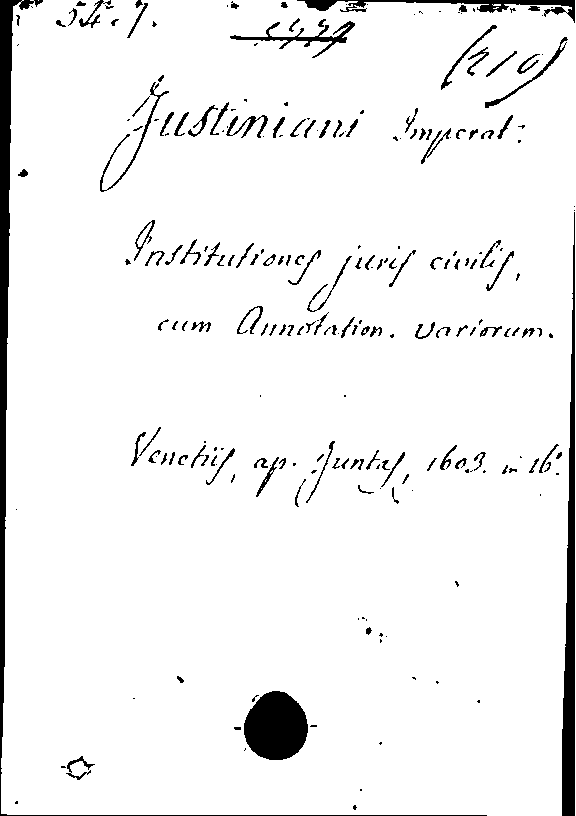 54. 7.
(210)
Justiniani Imperat:
Institutiones juris civilis,
cum Annotation. variorum.
Venetiis, ap. Juntas, 1603. in 16°.